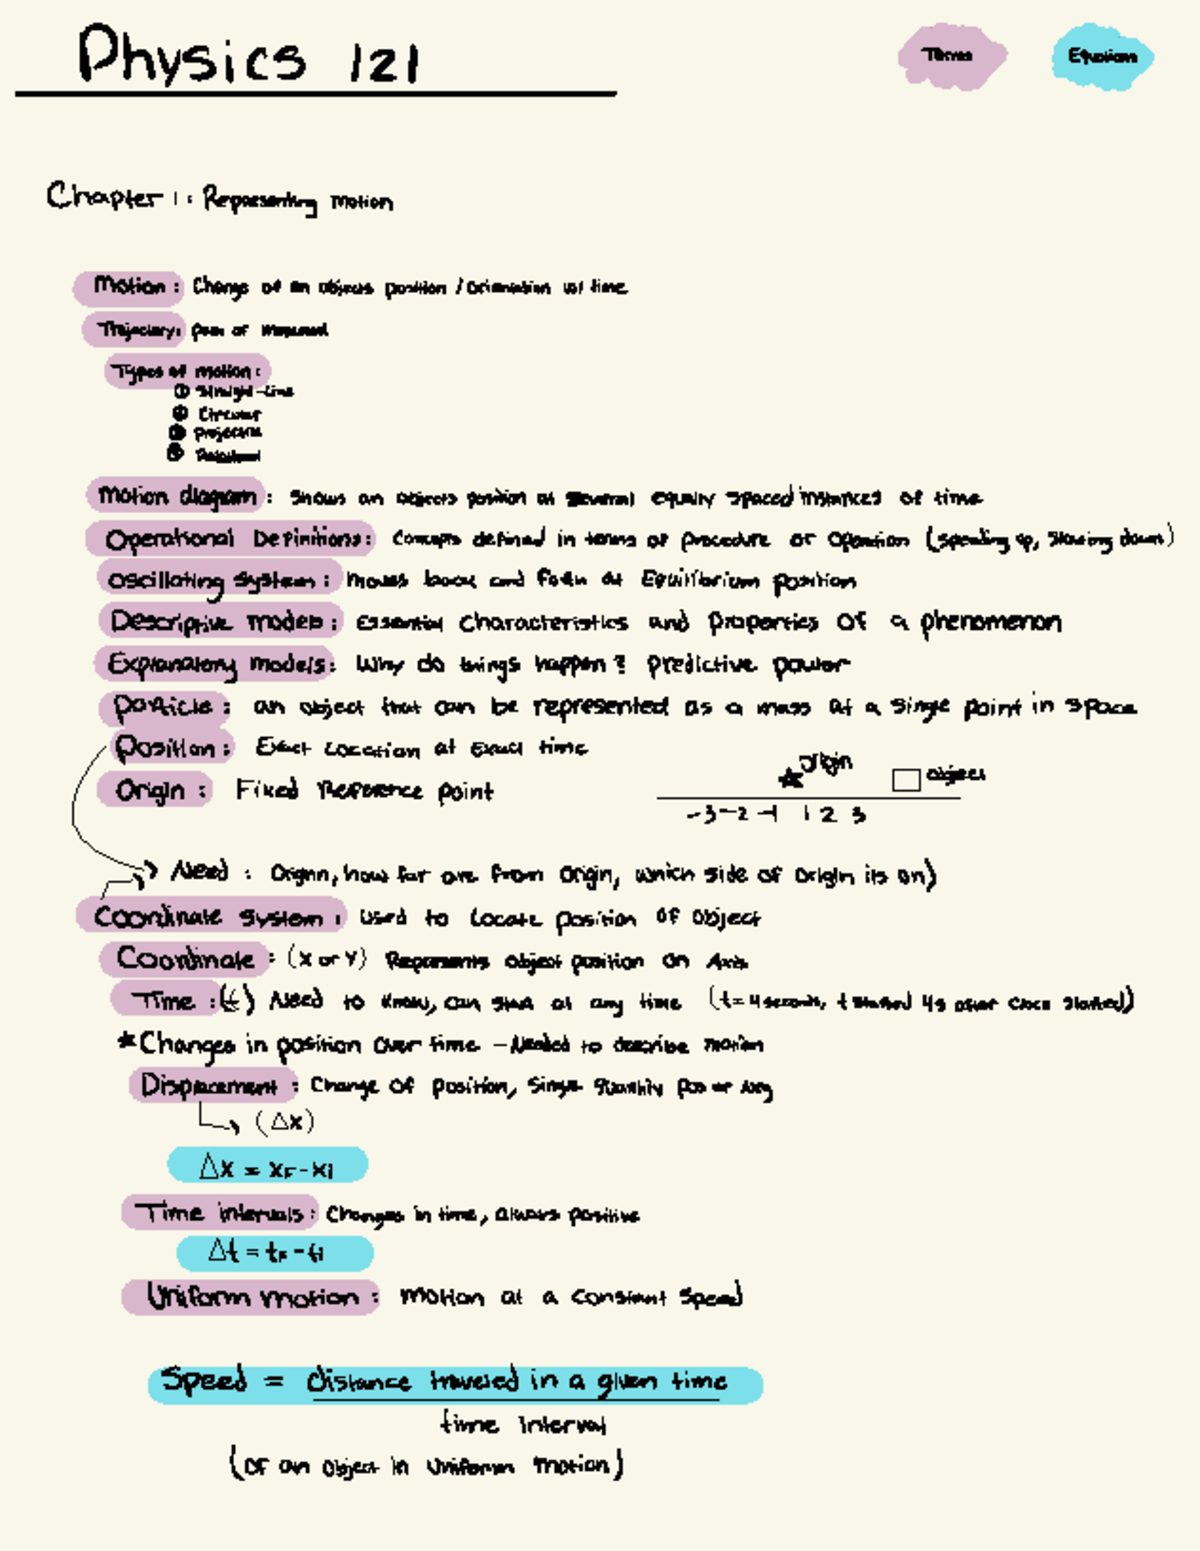 Physics 121
Terms
Equations
Chapter 1: Representing Motion
Motion: Change of an objects position / orientation w/ time
Trajectory: path of movement
Types of motion:
① Straight-Line
② Circular
③ Projectile
④ Rotational
Motion diagram: Shows an objects position at several equally spaced instances of time
Operational Definitions: Concepts defined in terms of procedure or operation (speeding up, slowing down)
Oscillating System: Moves back and forth at Equilibrium position
Descriptive models: Essential characteristics and properties of a phenomenon
Explanatory models: Why do things happen? Predictive power
Particle: an object that can be represented as a mass at a single point in space
Position: Exact Location at exact time
origin
object
Origin: Fixed Reference point
-3 -2 -1 1 2 3
Need: Origin, how far are from origin, which side of origin its on)
Coordinate System: Used to Locate position of object
Coordinate: (x or y) Represents object position on Axis
Time: (t) Need to know, can start at any time (t=4 seconds, t started 4s after clock started)
★Changes in position over time - Needed to describe motion
Displacement: Change of position, single quantity pos or neg
(Δx)
Δx = xF - xi
Time intervals: Changes in time, always positive
Δt = tF - ti
Uniform motion: Motion at a constant speed
Speed = distance traveled in a given time
time interval
(of an object in uniform motion)